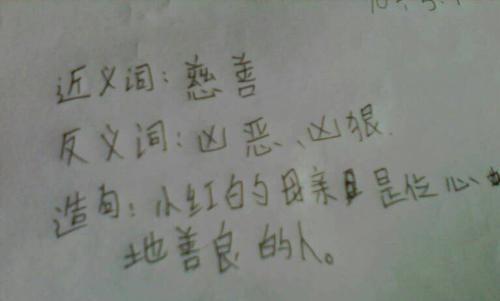 近义词：慈善
反义词：凶恶、凶狠.
造句：小红的母亲是位心
地善良的人。